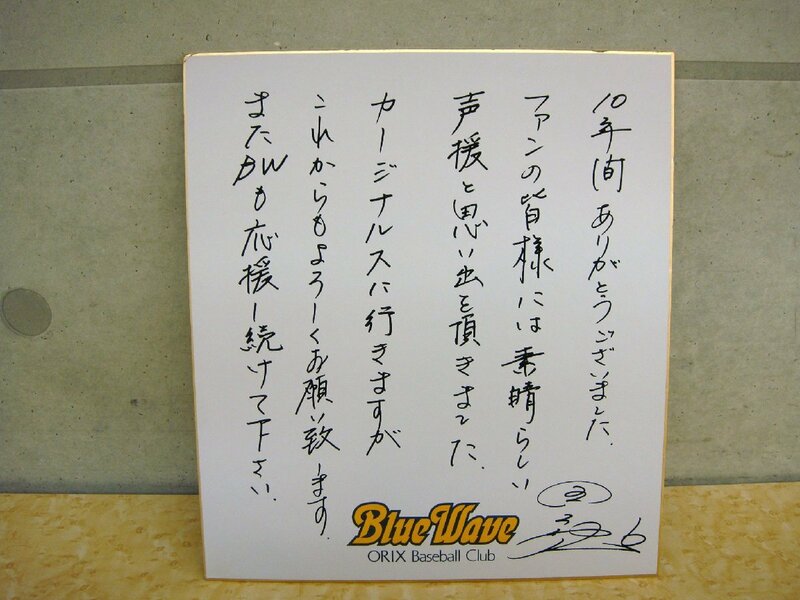 10年間ありがとうございました.
ファンの皆様には素晴らしい
声援と思い出を頂きました.
カージナルスに行きますが
これからもよろしくお願い致します.
またBWも応援し続けて下さい.
Blue Wave
ORIX Baseball Club
6